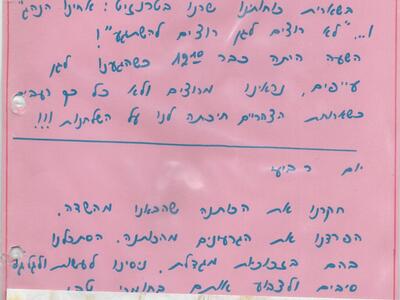 בשארית כוחותינו שרנו בטרנזיט: אחינו הנהג"
ו..."לא רוצים לגן רוצים להשתגע"!
השעה היתה כבר 12:10 כשהגענו לגן
עייפים, נראינו מרוצים ולא כל כך רעבים
כשארוחת הצהריים חיכתה לנו על השולחנות!!!
יום רביעי
חקרנו את הכותנה שהבאנו מהשדה.
הפרדנו את הגרעינים מהכותנה. הסתכלנו
בהם בזכוכית מגדלת, ניסינו לעשות ולגלגל
סיבים ולצבוע אותם בחומרי